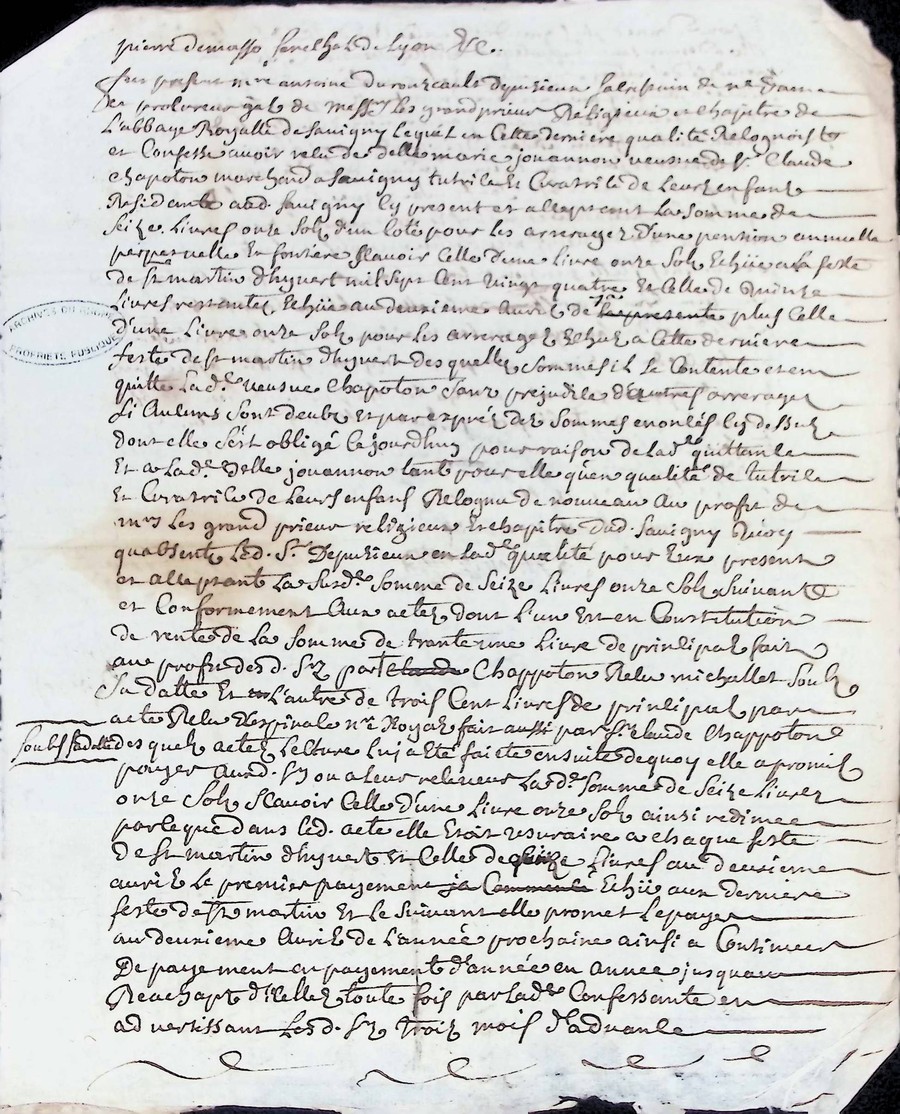 pierre demasso senelhal de Lyon &c.
fut present mre antoine du de pusieux sacristain de nre dame
et procureur gal de messrs les grand prieur Religieux et chapitre de
L'abbaye Royalle de savigny lequel en cette derniere qualité Relognoist
et Confesse avoir relu de delle marie jouannon veusve de Sr. Claude
Chapoton marchand a Savigny tutrile et Curatrile de leurs enfans
Residante aud. Savigny Cy presente et acceptant La somme de
Seize Livres onze Solz d'un coté pour les arrerages d'une pention annuelle
perpetuelle Et fontiere Scavoir Celle d'une livre onze Solz Echüe a la feste
de St martin d'hyvert mil Sept Cent vingt quatre Et Celle de Quinze
Livres restantes Echüe au deuxieme Avril de plus Celle
d'une Livre onze Solz pour les arrerages Echuz a Cette derniere
feste de St martin d'hyvert desquelles Sommes il Se Contente et en
quitte Lad.e veusve Chapoton Sans prejudile d'autres arrerages
Si Aulcuns Sont deubz Et par exprés des Sommes
dont elle S'est obligé Cejourdhuy pour raison de Lad.e quittance
Et a Lad.e Delle jouannon tant pour elle qu'en qualité de tutrile
Et Curatrile de Leurs enfans Relogneu de nouveau Au profit de
mrs Les grand prieur religieux Et chapitre dud. Savigny
quabsents Led. Sr. Depusieux en Lad.e qualité pour Eux present
et acceptant La Susd.e Somme de Seize Livres onze Solz Suivant
et Conformement Aux actes dont L'un Est en Constitution
de rente de La Somme de trante une Livre de principal fait
au profit desd. Srs par Claude Chappoton Relu michallet Soubz
Sa datte Et L'autre de trois Cent Livres de principal par
acte Relu Despinale nre Royal fait aussi par Sr. Claude Chappoton
soubs sa datte desquels actes Lecture luj a Eté faicte ensuite dequoy elle a promis
payer Ausd. Srs ou a Leur releveur Lad.e Somme de Seize Livres
onze Solz Scavoir Celle d'une Livre onze Solz ainsi redimee
parceque dans led. acte elle Etoit usuraire a chaque feste
de St martin d'hyvert Et Celle de quinze Livres au deuxieme
avril le premier payement ja Commencé Echüe aux derniere
feste de St martin Et le Suivant elle promet Le payer
au deuxieme Avril de L'année prochaine ainsi a Continuer
De payement en payement d'année en année jusqu'au
Reachapt d'icelles toute fois par Lad.e Confessante en
advertissant Lesd. Srs trois mois d'advance
ARCHIVES DU RHÔNE
PROPRIÉTÉ PUBLIQUE